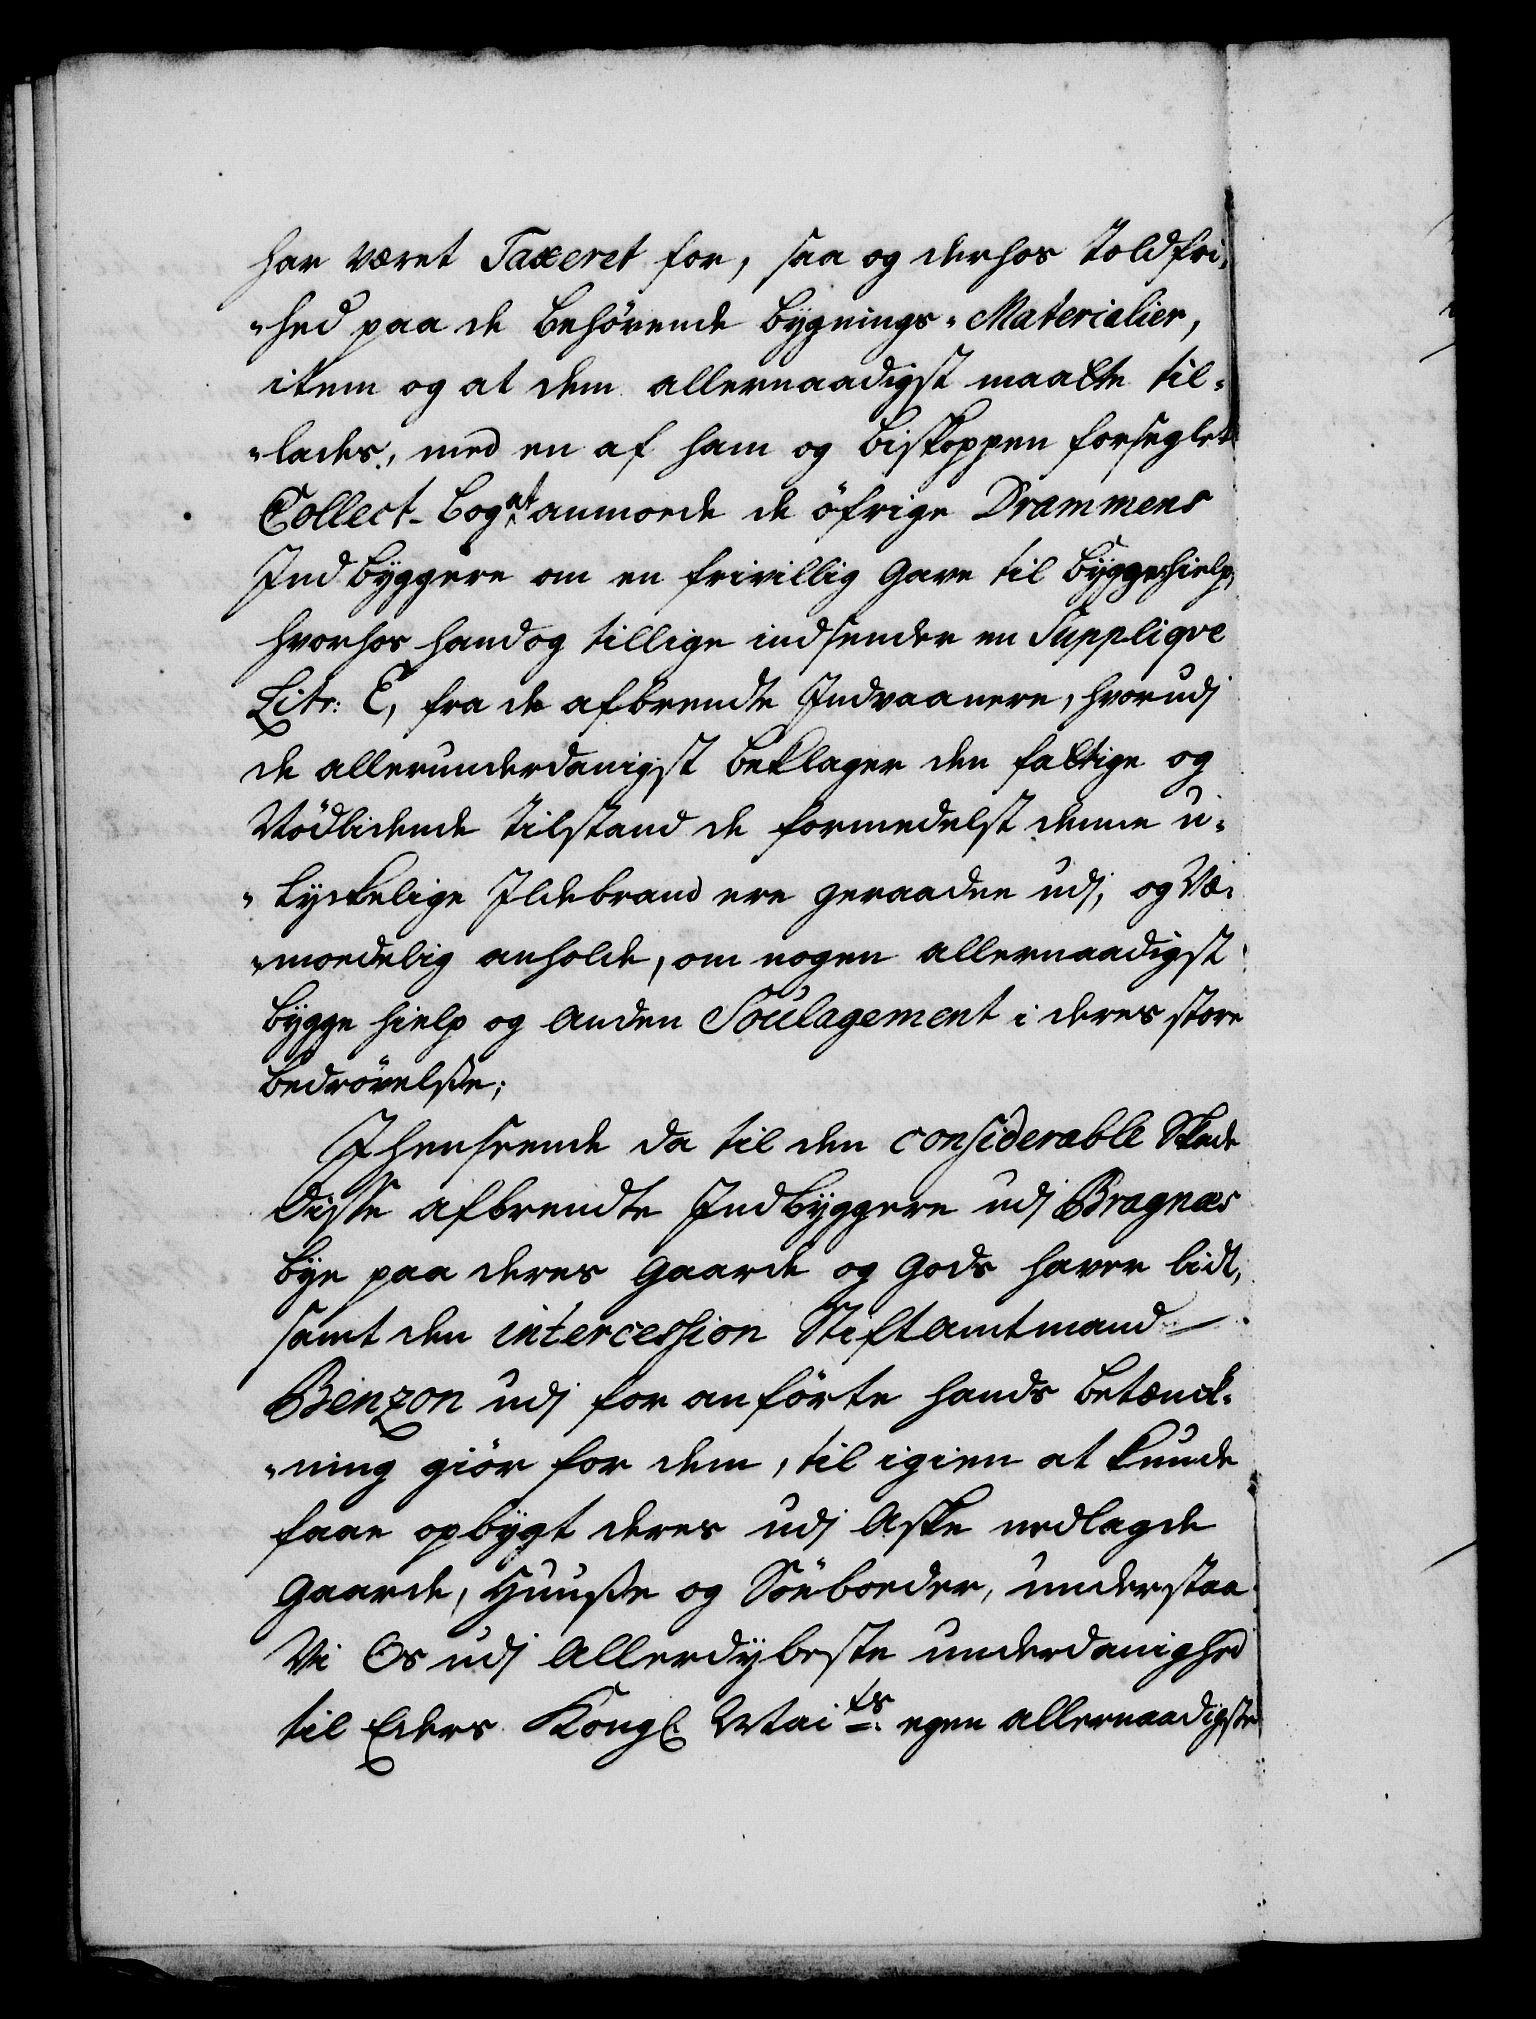 har været Taxeret for, saa og derhos Toldfri-
-hed paa de behörende bygnings-Materialier,
item og at dem allernaadigst maatte til-
-lades, med en af ham og biskoppen forseglet
Collect-bog at anmode de öfrige Drammens
Indbyggere om en frivillig Gave til byggehielp,
hvorhos hand og tillige indsender en Suppliqve
Litr: E, fra de afbrendte Indvaanere, hvorudj
de allerunderdanigst beklager den fattige og
Nödlidende tilstand de formedelst denne u-
-lyckelige Ildebrand ere geraaden udj, og We-
-moedelig anholde, om nogen allernaadigst
bygge hielp og anden Soulagement i deres store
bedrövelsse;
Ihenseende da til den considerable Skade
disse afbrendte Indbyggere udj Bragnæs
bye paa deres gaarde og gods haver lidt,
samt den intercession Stiftamtmand
Benzon udj for anförte hands betænck-
-ning giör for dem, til igien at kunde
faae opbygt deres udj Aske nedlagde
gaarde, Huusse og Söeboeder, understaa
Vi Os udj allerdybeste underdanighed
til Eders Kongl Maits: egen allernaadigste